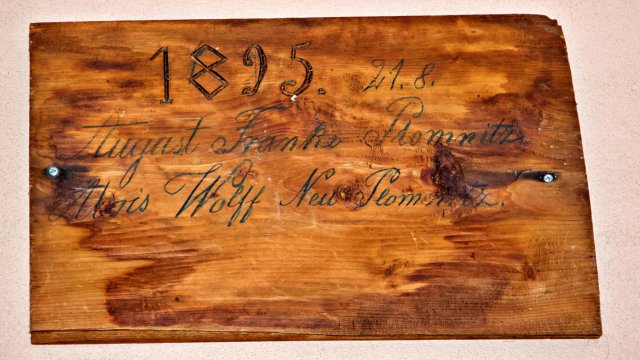 1895. 21. 8.
August Franke Plomnitz.
Alois Wolff Neu Plomnitz.